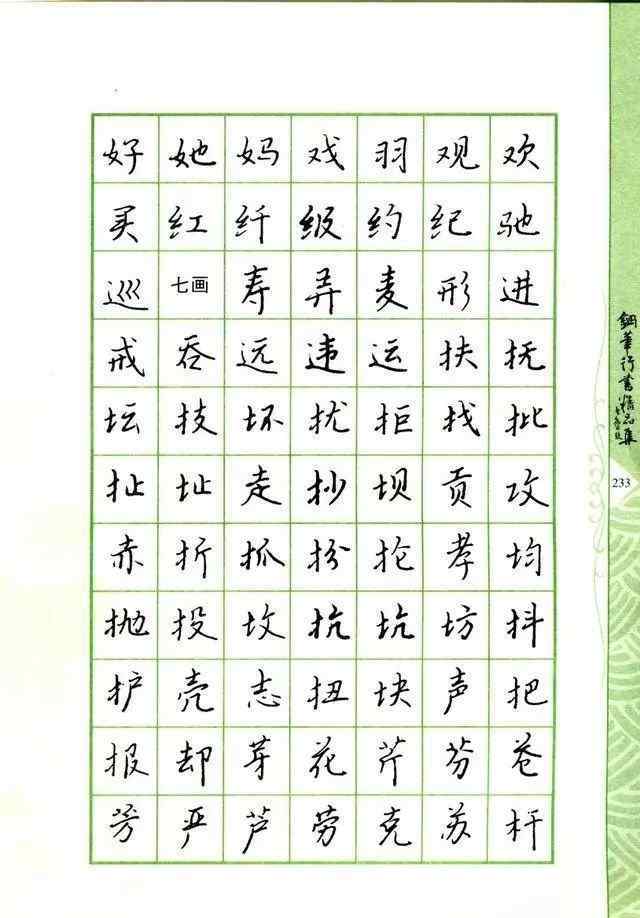 好她妈戏羽观欢
买红纤级约纪驰
巡七画寿弄麦形进
戒吞远违运扶抚
坛技坏扰拒找批
扯址走抄坝贡攻
赤折抓扮抡孝均
抛投坟抗坑坊抖
护壳志扭块声把
报却芽花芹芬苍
芳严芦劳克苏杆
鋼筆行書精品集
233